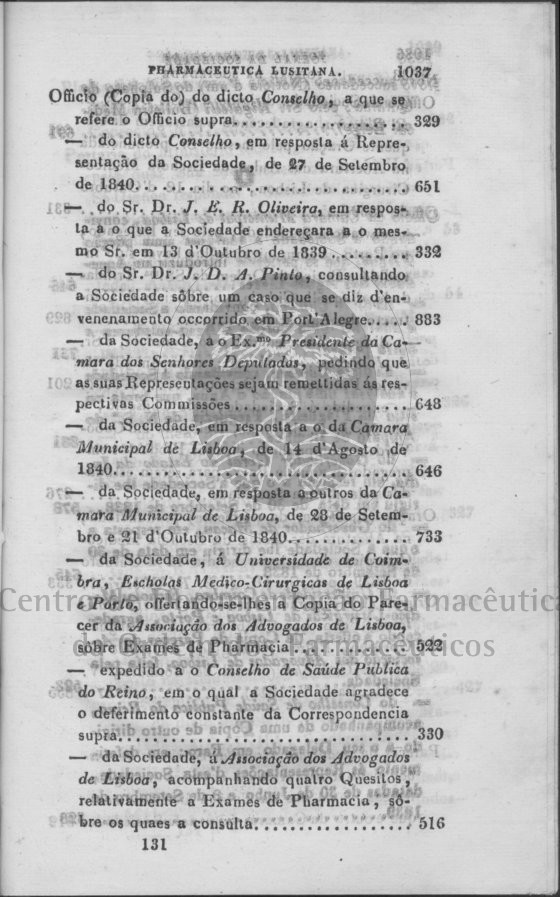 PHARMACEUTICA LUSITANA. 1037
Officio (Copia do) do dicto Conselho, a que se
refere o Officio supra.................... 329
— do dicto Conselho, em resposta á Repre-
sentação da Sociedade, de 27 de Setembro
de 1840................................ 651
— do Sr. Dr. J. E. R. Oliveira, em respos-
ta a o que a Sociedade endereçara a o mes-
mo Sr. em 13 d'Outubro de 1839 ......... 332
— do Sr. Dr. J. D. A. Pinto, consultando
a Sociedade sôbre um caso que se diz d'en-
venenamento occorrido em Port'Alegre..... 883
— da Sociedade, a o Ex.mo Presidente da Ca-
mara dos Senhores Deputados, pedindo que
as suas Representações sejam remettidas ás res-
pectivas Commissões .................... 648
— da Sociedade, em resposta a o da Camara
Municipal de Lisboa, de 14 d'Agosto de
1840.................................. 646
— da Sociedade, em resposta a outros da Ca-
mara Municipal de Lisboa, de 28 de Setem-
bro e 21 d'Outubro de 1840.............. 733
— da Sociedade, á Universidade de Coim-
bra, Escholas Medico-Cirurgicas de Lisboa
e Porto, offertando-se-lhes a Copia do Pare-
cer da Associação dos Advogados de Lisboa,
sôbre Exames de Pharmacia .............. 522
— expedido a o Conselho de Saúde Publica
do Reino, em o qual a Sociedade agradece
o deferimento constante da Correspondencia
supra.................................. 330
— da Sociedade, á Associação dos Advogados
de Lisboa, acompanhando quatro Quesitos,
relativamente a Exames de Pharmacia, sô-
bre os quaes a consulta................... 516
131